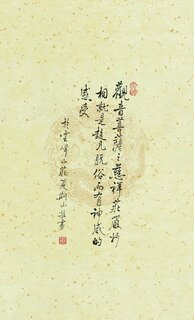 觀音菩薩之慈祥莊嚴妙
相就是超凡脫俗而有神威的
感受
於雲峰山莊